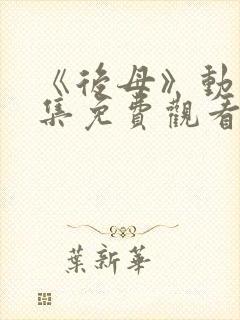 《後母》動
集免費觀看
葉新華